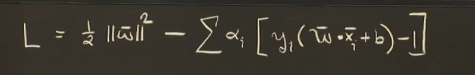 L = ½ ||w̄||² − ∑ αᵢ [yᵢ(w̄·x̄ᵢ + b) −1]